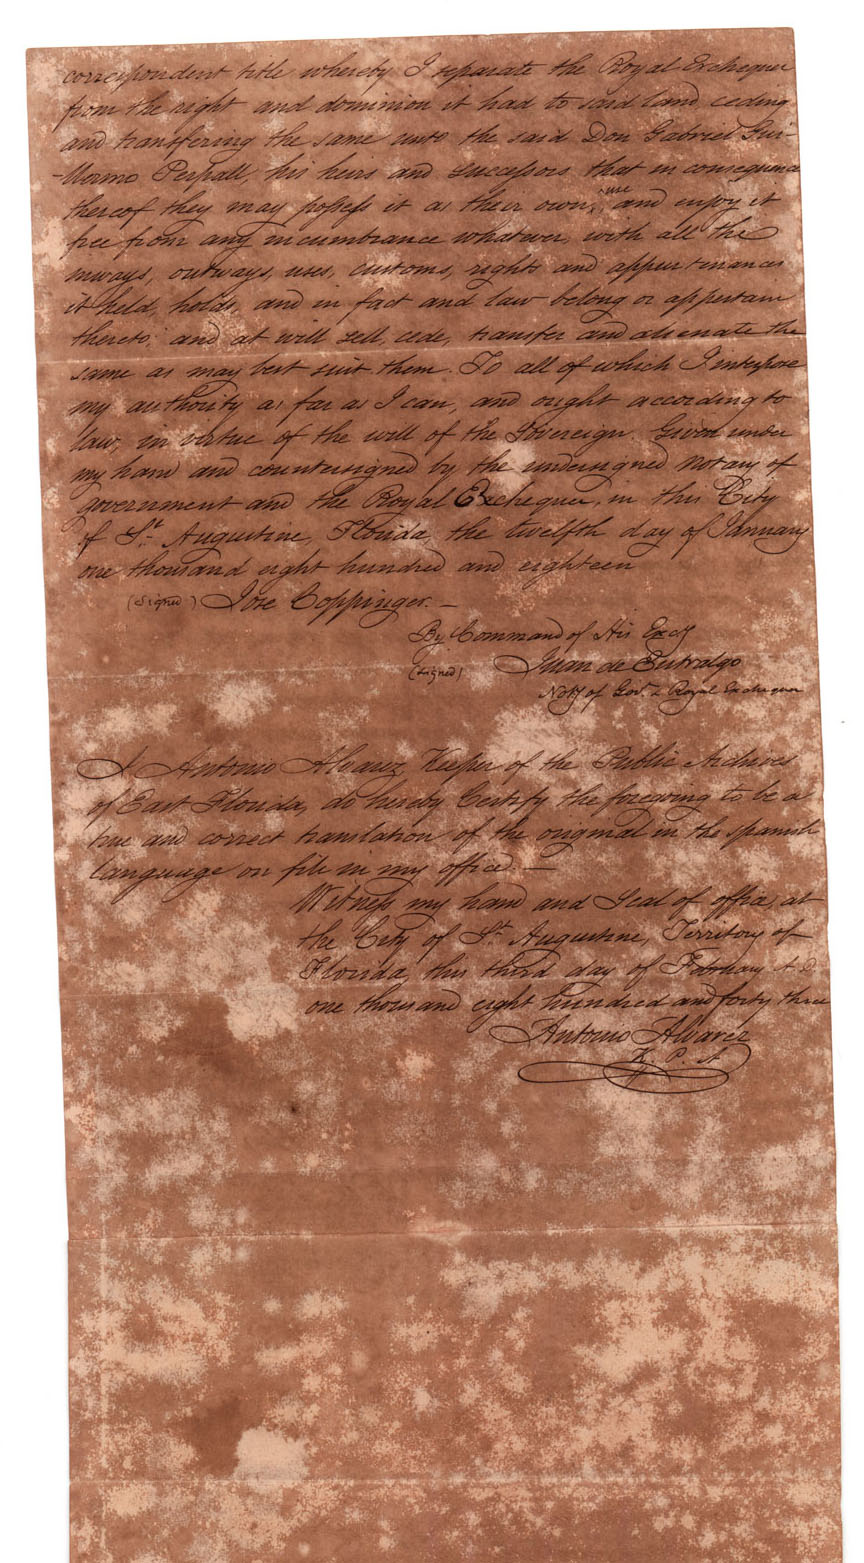 correspondent title whereby I separate the Royal Exchequer
from the right and dominion it had to said land ceding
and transfering the same unto the said Don Gabriel Guil-
-lermo Perpall, his heirs and successors that in consequence
thereof they may possess it as their own, use and enjoy it
free from any incumbrance whatever, with all the
inways, outways, uses, customs, rights and appurtenances
it held, holds, and in fact and law belong or appertain
thereto; and at will sell, cede, transfer and alienate the
same as may best suit them. To all of which I interpose
my authority as far as I can, and ought according to
law, in virtue of the will of the Sovereign. Given under
my hand and countersigned by the undersigned Notary of
government and the Royal Exchequer, in this City
of St. Augustine, Florida, the twelfth day of January
one thousand eight hundred and eighteen
(Signed) Jose Coppinger. —
By Command of His Excy
(Signed) Juan de Entralgo
Noty of Govt. & Royal Exchequer
I Antonio Alvarez, Keeper of the Public Archives
of East Florida, do hereby Certify the foregoing to be a
true and correct translation of the original in the spanish
language on file in my office. —
Witness my hand and Seal of office, at
the City of St. Augustine, Territory of
Florida, this third day of February A.D.
one thousand eight hundred and forty three
Antonio Alvarez
K. P. A